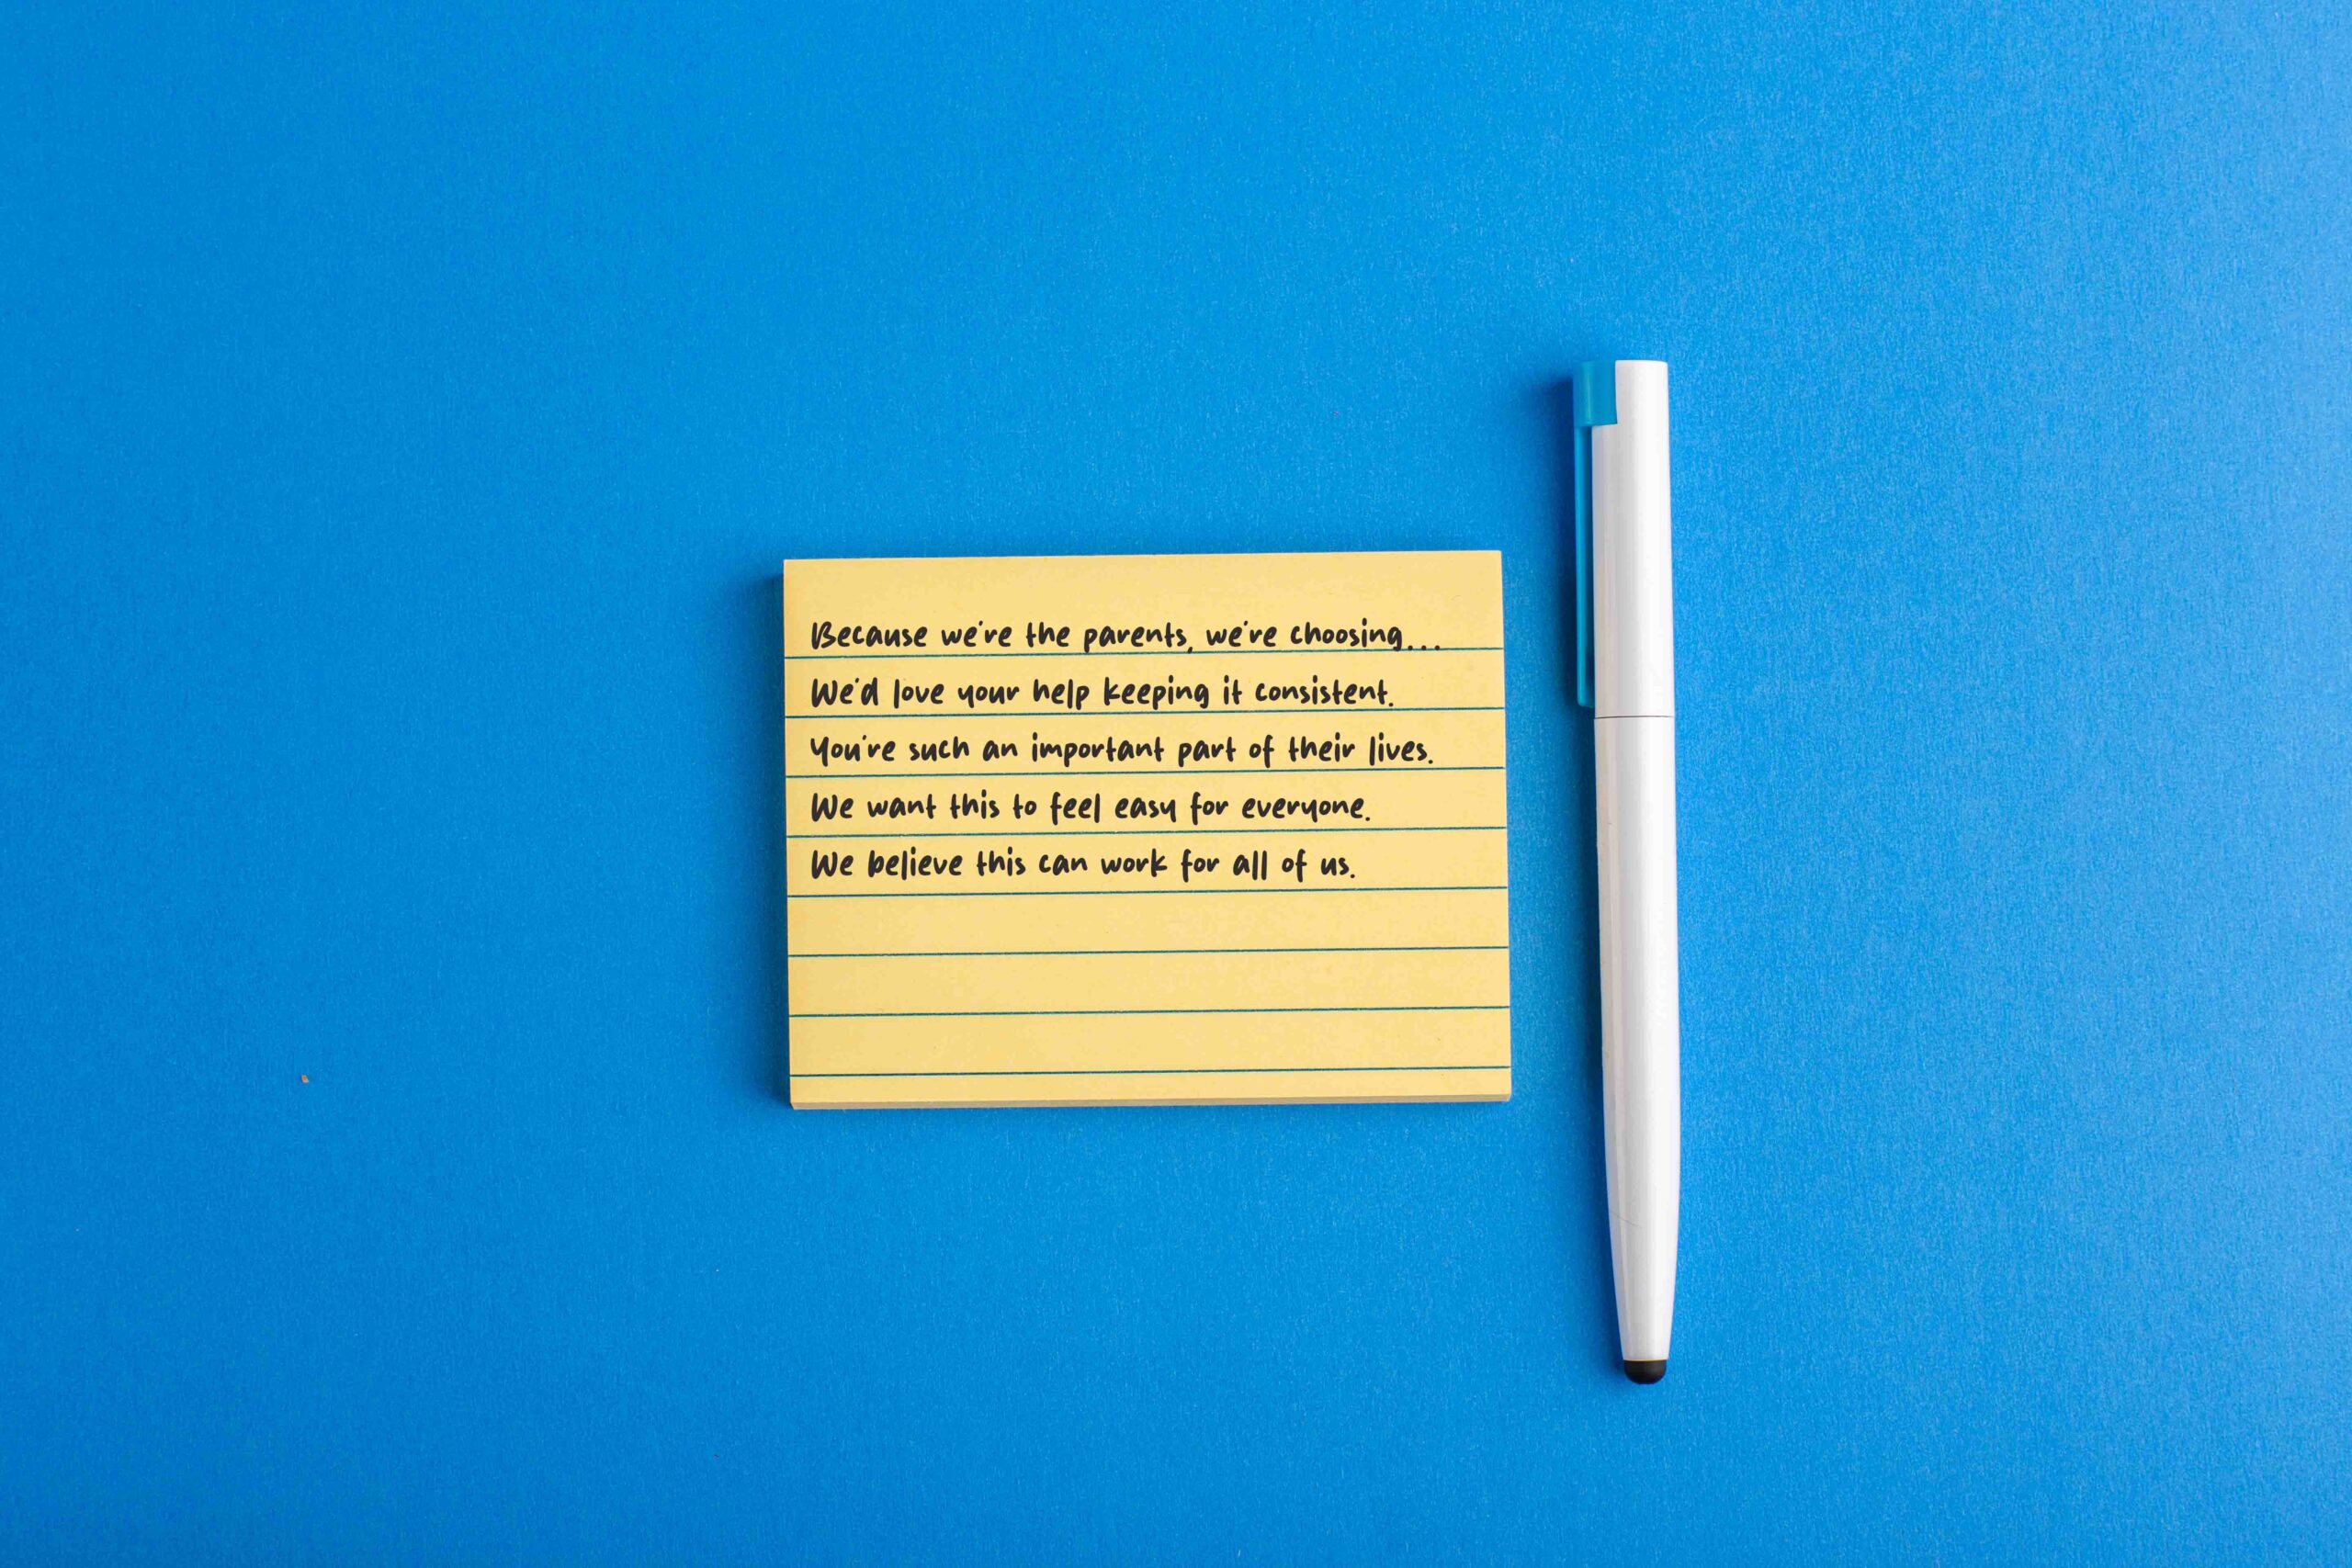 Because we're the parents, we're choosing...
We'd love your help keeping it consistent.
You're such an important part of their lives.
We want this to feel easy for everyone.
We believe this can work for all of us.